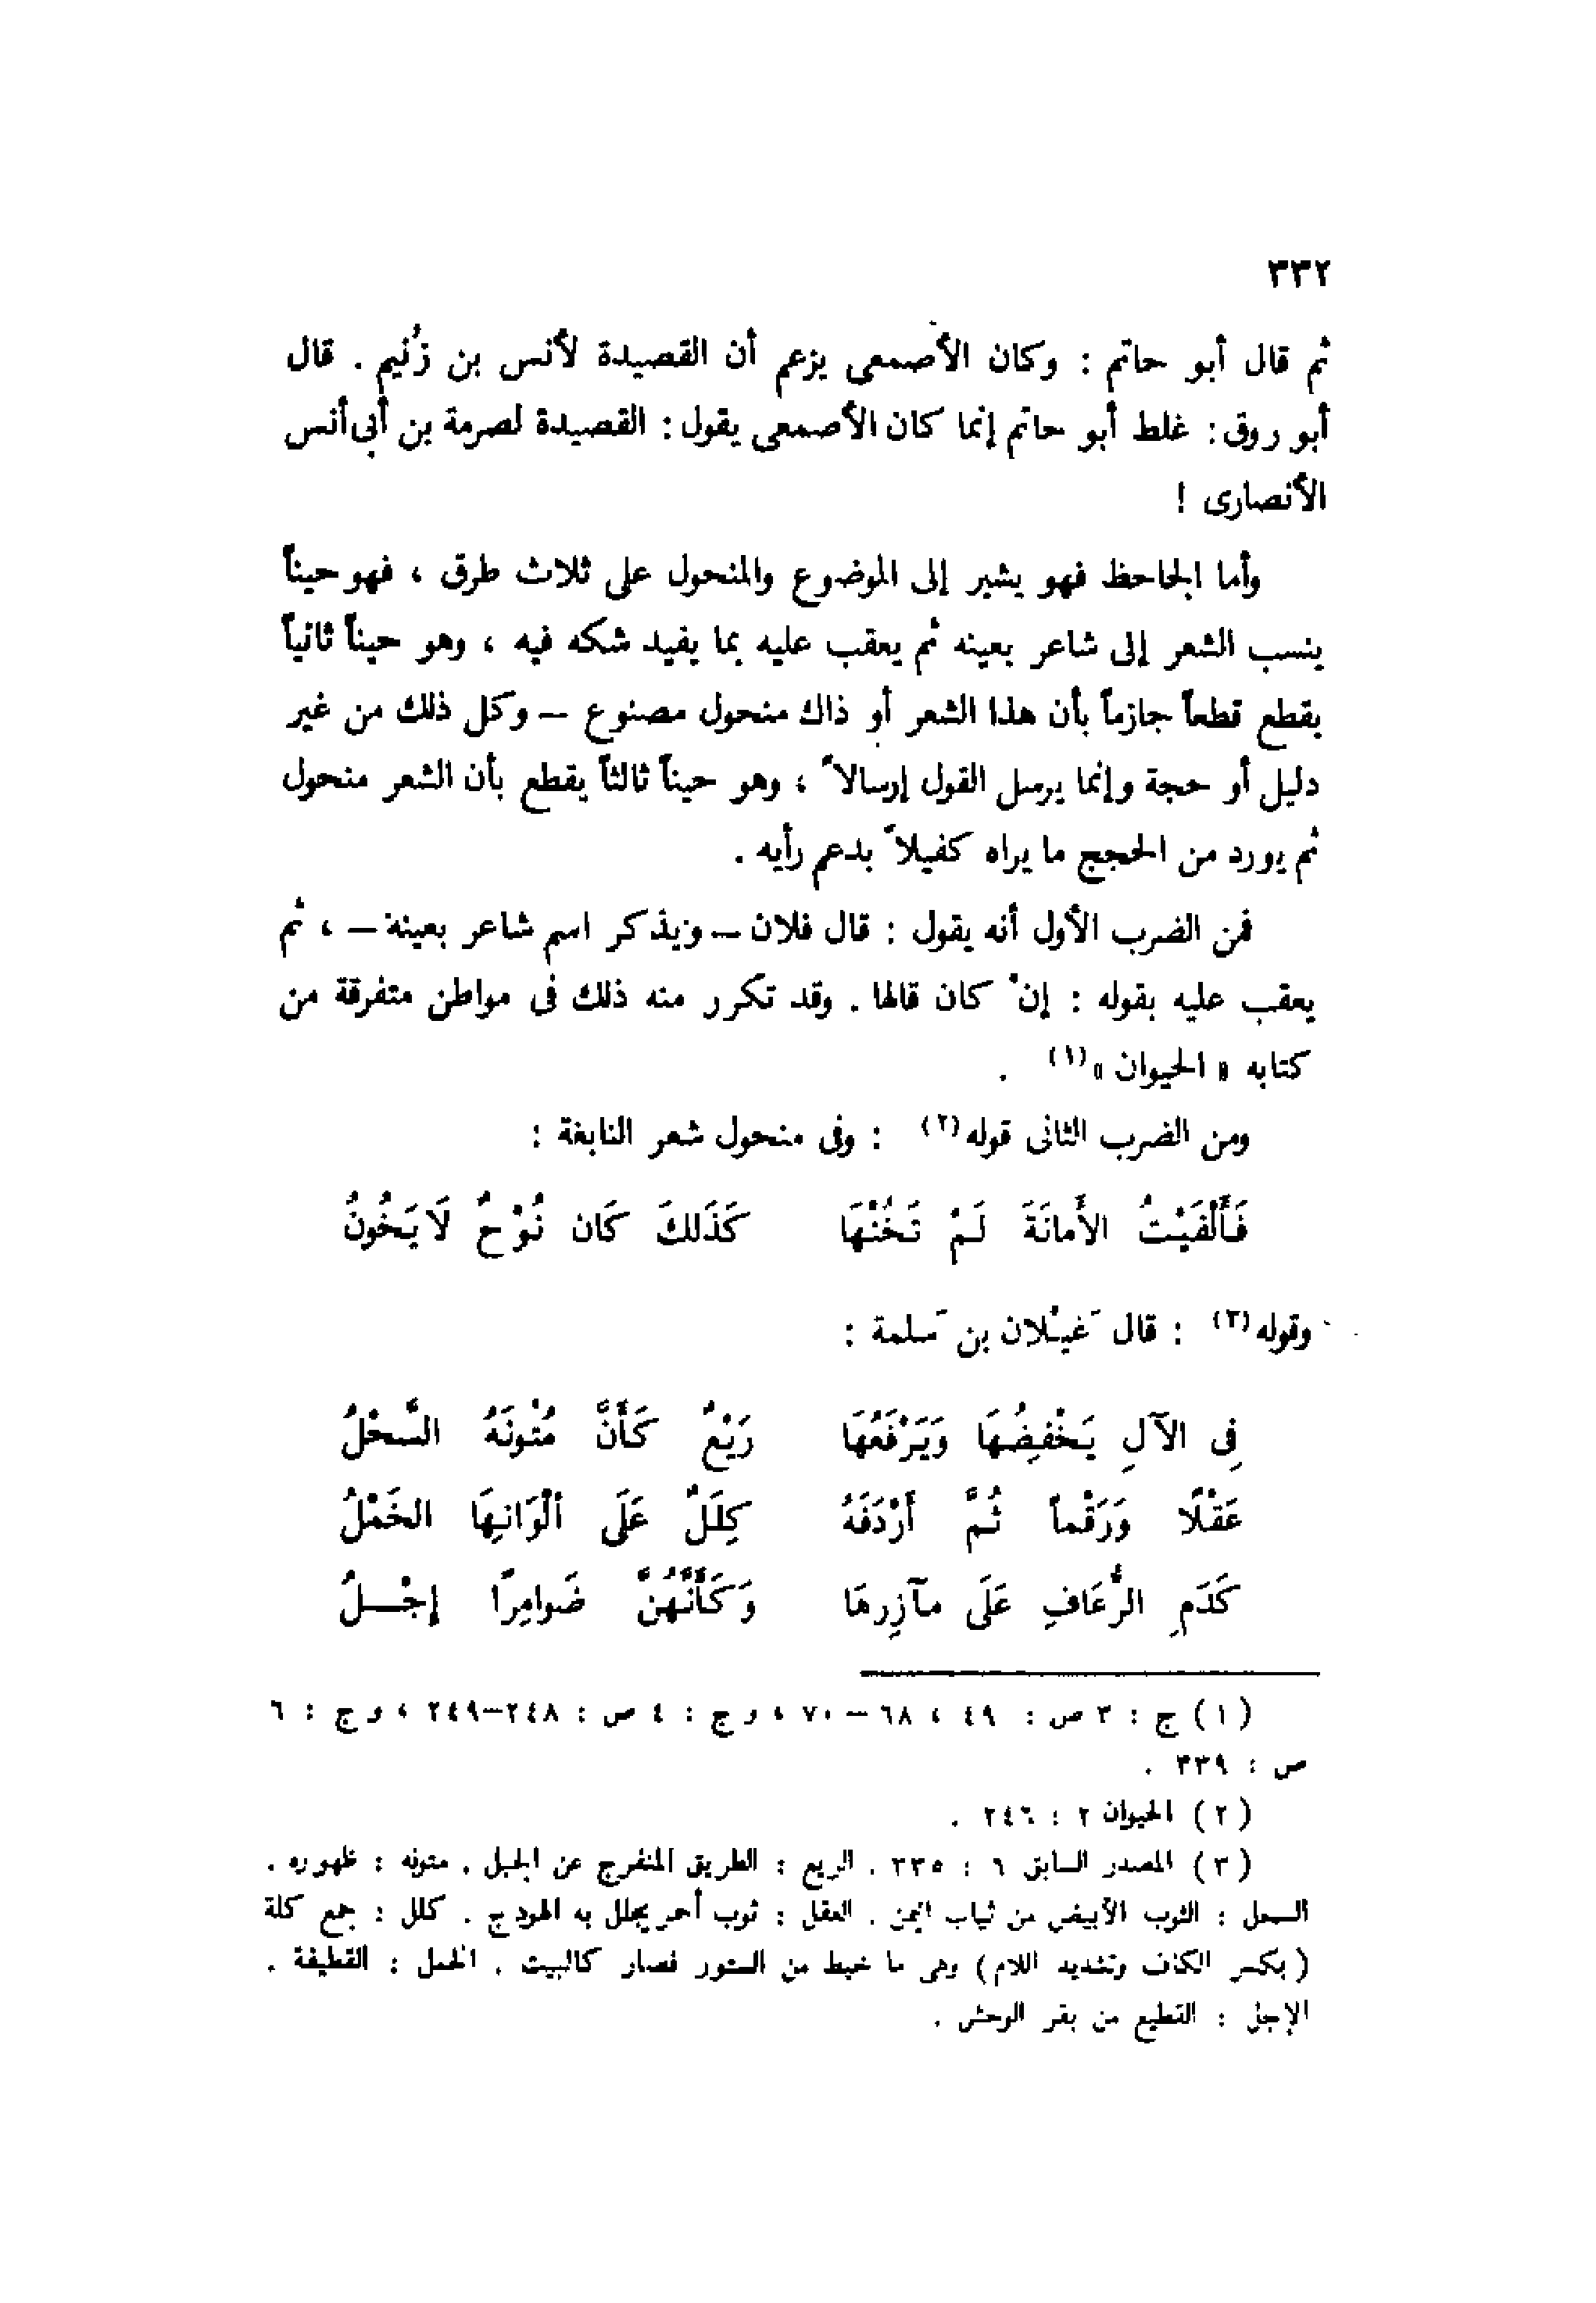 ٣٣٢
ثم قال أبو حاتم : وكان الأصمعى يزعم أن القصيدة لأنس بن زُنيم . قال
أبو روق : غلط أبو حاتم إنما كان الأصمعى يقول : القصيدة لصرمة بن أبى أنس
الأنصارى !
وأما الجاحظ فهو يشير إلى الموضوع والمنحول على ثلاث طرق ، فهو حيناً
ينسب الشعر إلى شاعر بعينه ثم يعقب عليه بما يفيد شكه فيه ، وهو حيناً ثانياً
يقطع قطعاً جازماً بأن هذا الشعر أو ذاك منحول مصنوع – وكل ذلك من غير
دليل أو حجة وإنما يرسل القول إرسالاً ، وهو حيناً ثالثاً يقطع بأن الشعر منحول
ثم يورد من الحجج ما يراه كفيلاً بدعم رأيه .
فمن الضرب الأول أنه يقول : قال فلان – ويذكر اسم شاعر بعينه – ، ثم
يعقب عليه بقوله : إنْ كان قالها . وقد تكرر منه ذلك فى مواطن متفرقة من
كتابه « الحيوان »(١) .
ومن الضرب الثانى قوله(٢) : وفى منحول شعر النابغة :
فَأَلْفَيْتُ الأَمانَةَ لَمْ تَخُنْهَا كَذَلكَ كَان نُوْحٌ لَا يَخُونُ
وقوله(٣) : قال غَيْلان بن سَلمة :
فِى الآلِ يَخْفِضُهَا وَيَرْفَعُهَا رَيْعٌ كَأَنَّ مُتْونَهُ السَّحْلُ
عَقْلًا وَرَقْماً ثُمَّ أَرْدَفَهُ كِلَلٌ عَلَى ألْوَانِهَا الخَمْلُ
كَدَمِ الرُّعَافِ عَلَى مآزِرِهَا وَكَأَنَّهُنَّ ضَوامِرًا إجْــلُ
(١) ج : ٣ ص : ٤٩ ، ٦٨ – ٧٠ ، و ج : ٤ ص : ٢٤٨–٢٤٩ ، و ج : ٦
ص : ٣٣٩ .
(٢) الحيوان ٢ : ٢٤٦ .
(٣) المصدر السابق ٦ : ٣٣٥ . الريع : الطريق المنفرج عن الجبل . متونه : ظهوره .
السحل : الثوب الأبيض من ثياب اليمن . العقل : ثوب أحمر يجلل به الهودج . كلل : جمع كلة
( بكسر الكاف وتشديد اللام ) وهى ما خيط من الستور فصار كالبيت . الخمل : القطيفة .
الإجل : القطيع من بقر الوحش .